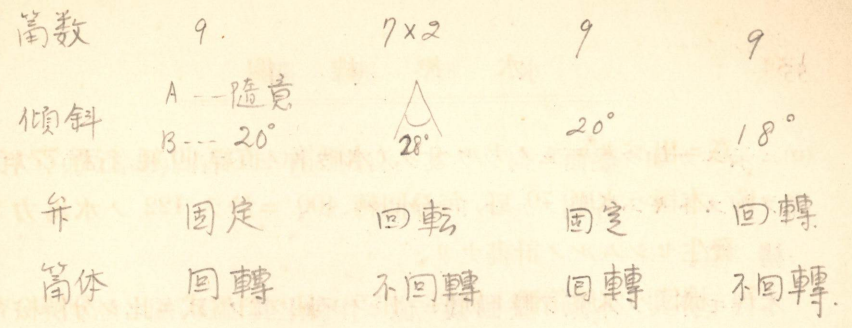 筒数 9. 7×2 9 9
傾斜 A---隨意 B---20° 28° 20° 18°
弁 固定 回転 固定 回轉
筒体 回轉 不回轉 回轉 不回轉.